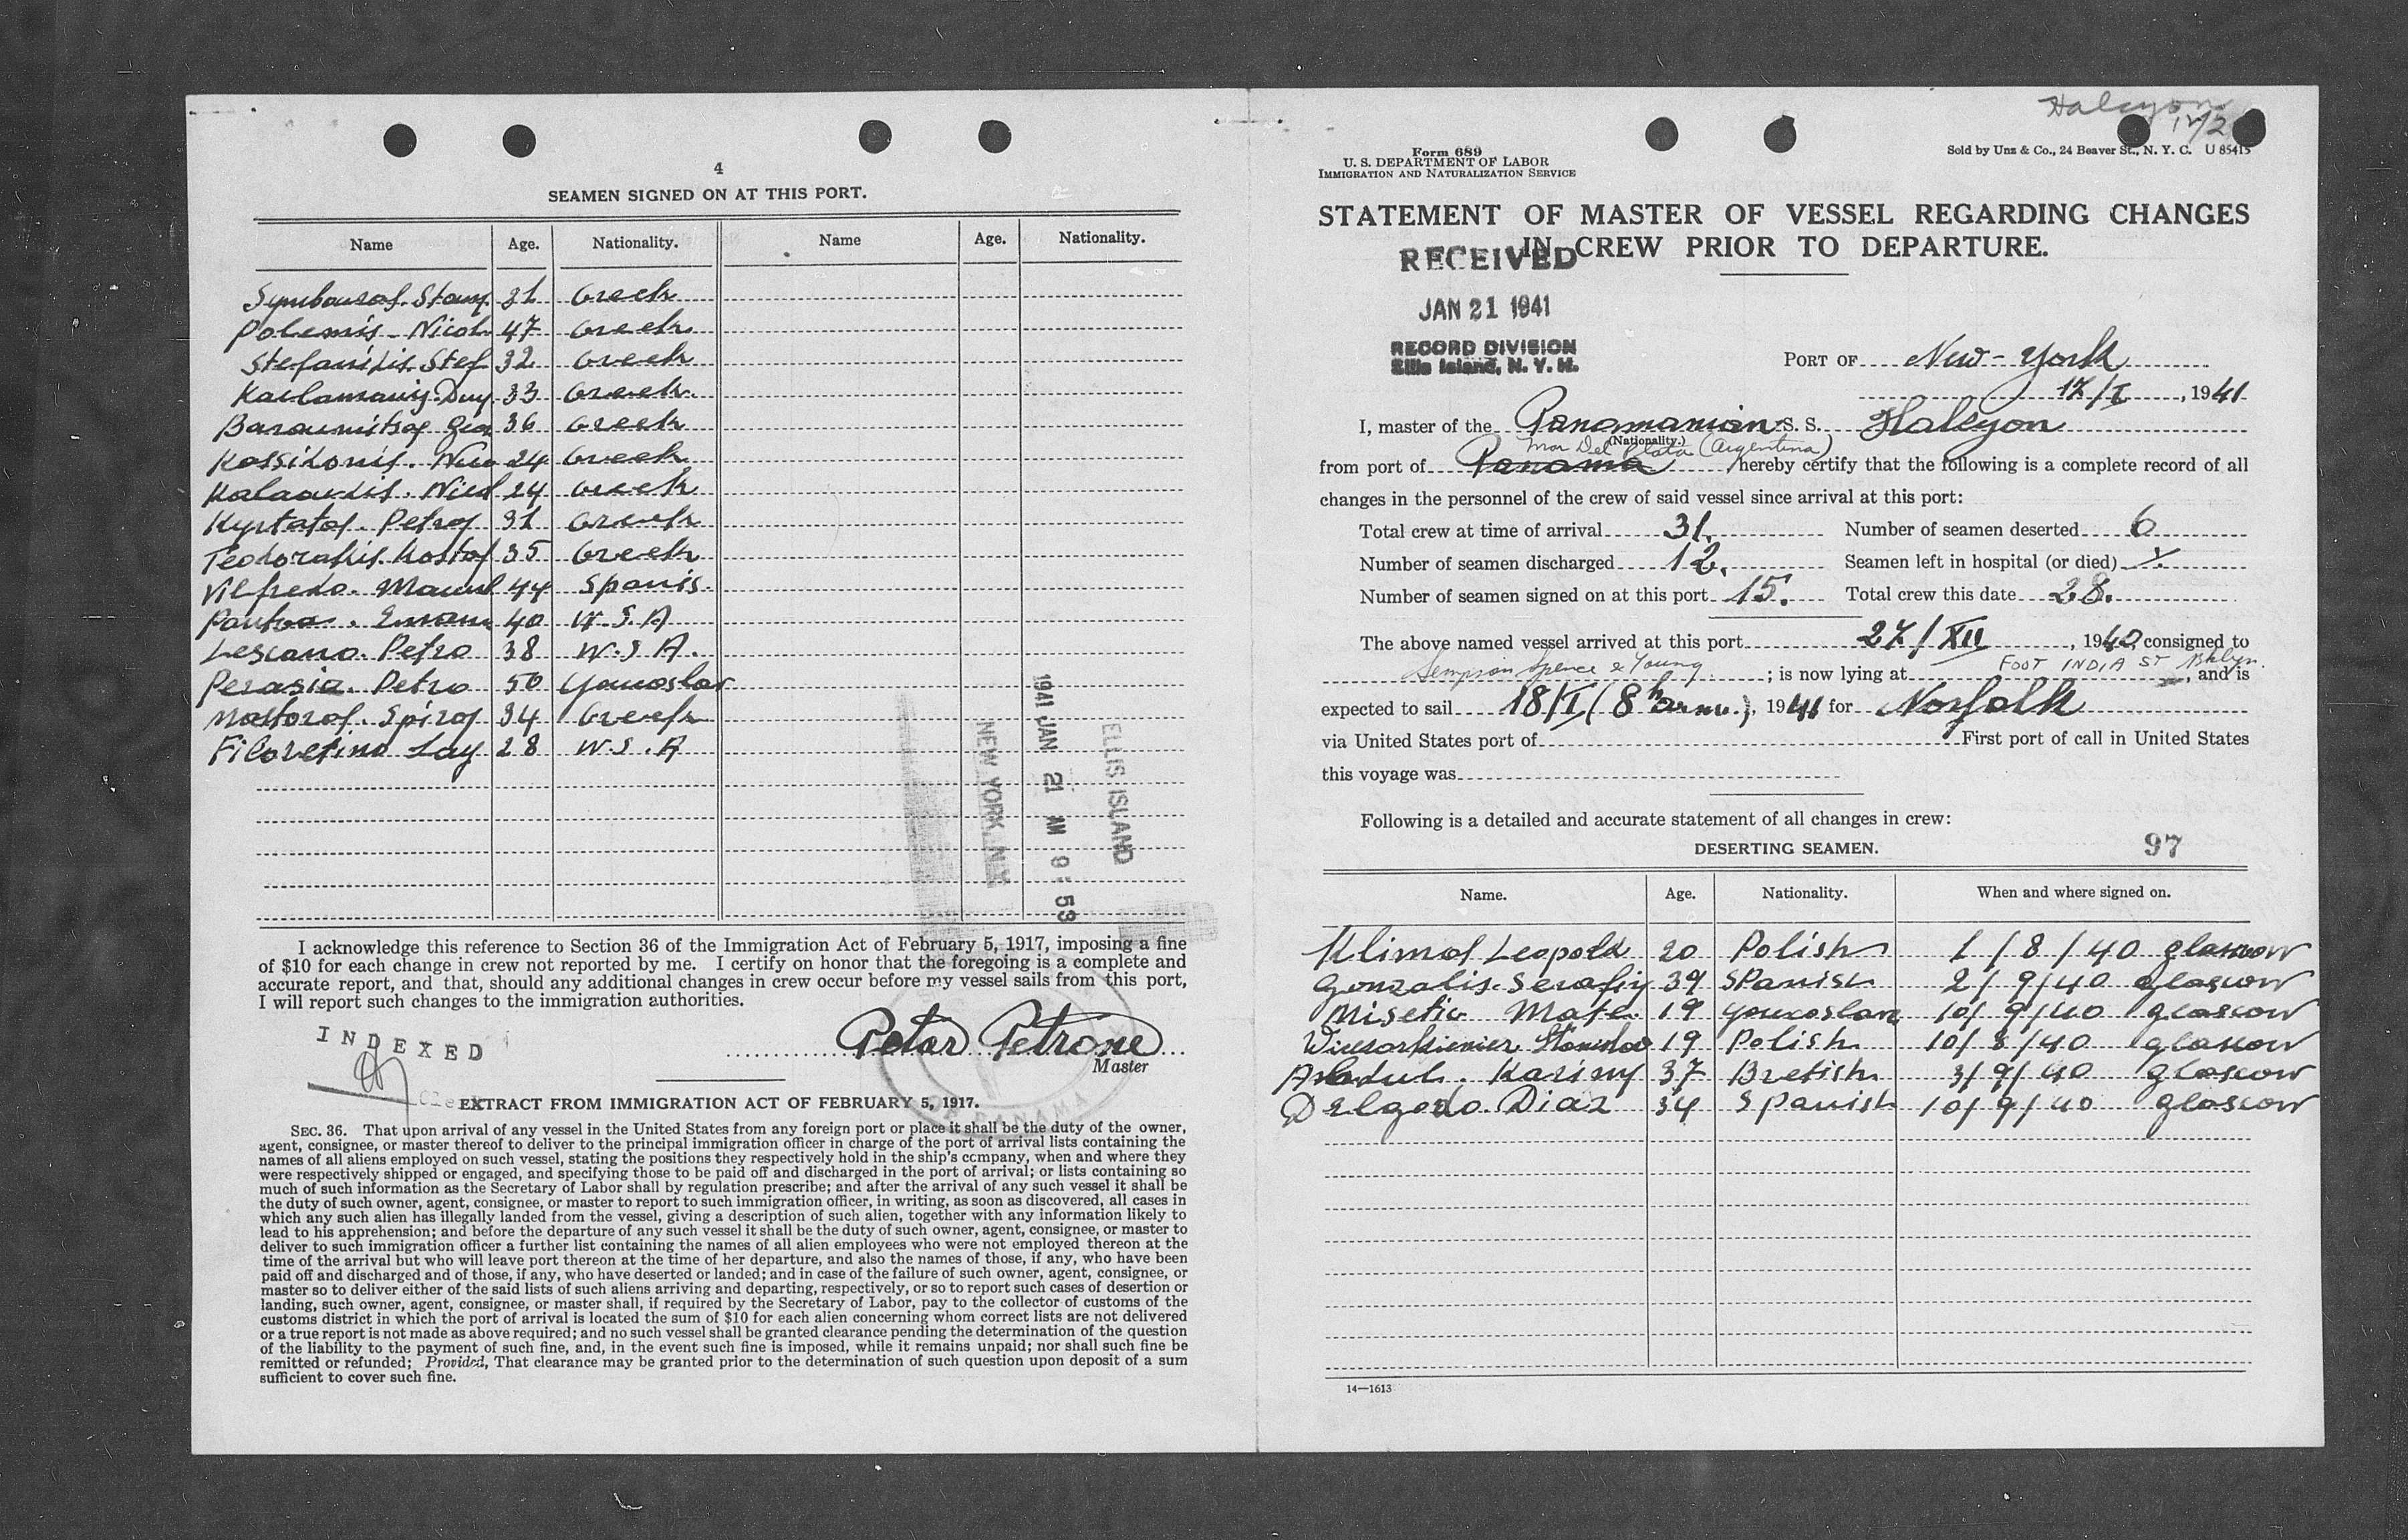 4
SEAMEN SIGNED ON AT THIS PORT.
Name Age. Nationality. Name Age. Nationality.
31 Greek
Polemis. Nicol 47 Greek
Stefanidis. Stef 32 Greek
33 Greek.
36 Greek
24 Greek
24 Greek
Kyrtatos. Petros 31 Greek
Teodorakis. Kostas 35 Greek
Vilfredo. Manuel 44 Spanis.
40 U.S.A
Lescano. Petro 38 U.S.A.
Perasia. Petro 50 Youcoslav
Mastoros. Spiros 34 Greek
28 U.S.A
1941 JAN 21 AM 9:53
ELLIS ISLAND
NEW YORK, N.Y.
I acknowledge this reference to Section 36 of the Immigration Act of February 5, 1917, imposing a fine
of $10 for each change in crew not reported by me. I certify on honor that the foregoing is a complete and
accurate report, and that, should any additional changes in crew occur before my vessel sails from this port,
I will report such changes to the immigration authorities.
INDEXED
Petar Petrone
Master
EXTRACT FROM IMMIGRATION ACT OF FEBRUARY 5, 1917.
SEC. 36. That upon arrival of any vessel in the United States from any foreign port or place it shall be the duty of the owner,
agent, consignee, or master thereof to deliver to the principal immigration officer in charge of the port of arrival lists containing the
names of all aliens employed on such vessel, stating the positions they respectively hold in the ship's company, when and where they
were respectively shipped or engaged, and specifying those to be paid off and discharged in the port of arrival; or lists containing so
much of such information as the Secretary of Labor shall by regulation prescribe; and after the arrival of any such vessel it shall be
the duty of such owner, agent, consignee, or master to report to such immigration officer, in writing, as soon as discovered, all cases in
which any such alien has illegally landed from the vessel, giving a description of such alien, together with any information likely to
lead to his apprehension; and before the departure of any such vessel it shall be the duty of such owner, agent, consignee, or master to
deliver to such immigration officer a further list containing the names of all alien employees who were not employed thereon at the
time of the arrival but who will leave port thereon at the time of her departure, and also the names of those, if any, who have been
paid off and discharged and of those, if any, who have deserted or landed; and in case of the failure of such owner, agent, consignee, or
master so to deliver either of the said lists of such aliens arriving and departing, respectively, or so to report such cases of desertion or
landing, such owner, agent, consignee, or master shall, if required by the Secretary of Labor, pay to the collector of customs of the
customs district in which the port of arrival is located the sum of $10 for each alien concerning whom correct lists are not delivered
or a true report is not made as above required; and no such vessel shall be granted clearance pending the determination of the question
of the liability to the payment of such fine, and, in the event such fine is imposed, while it remains unpaid; nor shall such fine be
remitted or refunded; Provided, That clearance may be granted prior to the determination of such question upon deposit of a sum
sufficient to cover such fine.
Halcyon
Form 689
U. S. DEPARTMENT OF LABOR
IMMIGRATION AND NATURALIZATION SERVICE
Sold by Unz & Co., 24 Beaver St., N. Y. C. U 85415
STATEMENT OF MASTER OF VESSEL REGARDING CHANGES
IN CREW PRIOR TO DEPARTURE.
RECEIVED
JAN 21 1941
RECORD DIVISION
Ellis Island, N. Y. H.
PORT OF New-York
17/I, 1941
I, master of the Panamanian S. S. Halcyon
(Nationality.)
Mar Del Plata (Argentina)
from port of Panama hereby certify that the following is a complete record of all
changes in the personnel of the crew of said vessel since arrival at this port:
Total crew at time of arrival 31. Number of seamen deserted 6
Number of seamen discharged 12. Seamen left in hospital (or died)
Number of seamen signed on at this port 15. Total crew this date 28.
The above named vessel arrived at this port 27/XII, 1940, consigned to
Simpson Spence & Young; is now lying at FOOT INDIA ST Bklyn., and is
expected to sail 18/I (8h a.m.), 1941 for Norfolk
via United States port of First port of call in United States
this voyage was
Following is a detailed and accurate statement of all changes in crew:
DESERTING SEAMEN. 97
Name. Age. Nationality. When and where signed on.
Klimas Leopold 20 Polish 1/8/40 glascow
Gonzalis. Serafin 39 Spanish 2/9/40 glascow
Misetic Mate 19 Youcoslav 10/9/40 glascow
19 Polish 10/8/40 glascow
Abdul. Karimy 37 Bretish 3/9/40 glascow
Delgodo Diaz 34 Spanish 10/9/40 glascow
14—1613